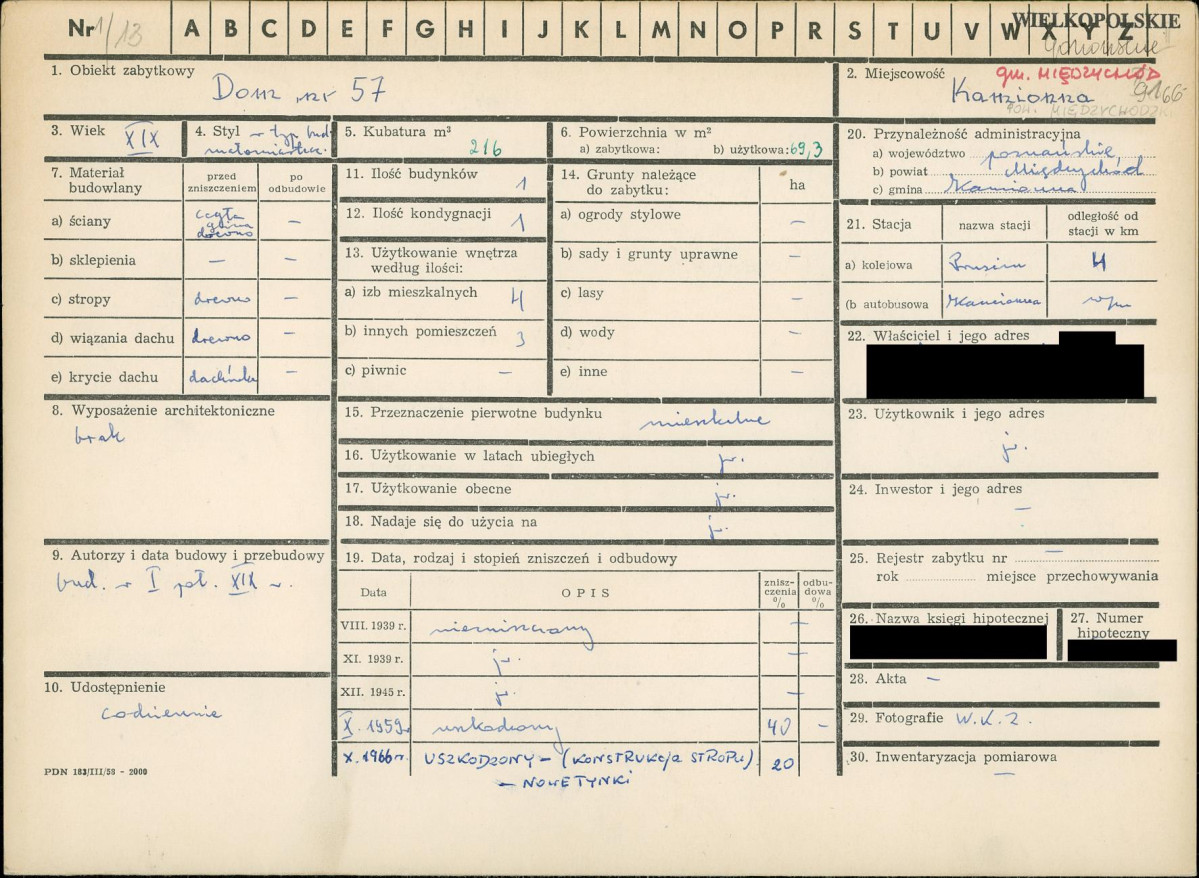 Nr 1/13 A B C D E F G H I J K L M N O P R S T U V W X Y Z
WIELKOPOLSKIE
1. Obiekt zabytkowy
Dom nr 57
2. Miejscowość
gm. MIĘDZYCHÓD
Kamionna
POW. MIĘDZYCHODZKI
3. Wiek XIX
4. Styl w typ. bud.
małomiasteczk.
5. Kubatura m³
216
6. Powierzchnia w m²
a) zabytkowa: b) użytkowa: 69,3
20. Przynależność administracyjna
a) województwo poznańskie,
b) powiat Międzychód
c) gmina Kamionna
7. Materiał budowlany
przed zniszczeniem
po odbudowie
a) ściany cegła glina drewno –
b) sklepienia – –
c) stropy drewno –
d) wiązania dachu drewno –
e) krycie dachu dachówka –
11. Ilość budynków 1
12. Ilość kondygnacji 1
13. Użytkowanie wnętrza
według ilości:
a) izb mieszkalnych 4
b) innych pomieszczeń 3
c) piwnic –
14. Grunty należące
do zabytku: ha
a) ogrody stylowe –
b) sady i grunty uprawne –
c) lasy –
d) wody –
e) inne –
21. Stacja nazwa stacji odległość od stacji w km
a) kolejowa Prusim 4
(b autobusowa Kamionna w/m
22. Właściciel i jego adres
8. Wyposażenie architektoniczne
brak
15. Przeznaczenie pierwotne budynku mieszkalne
16. Użytkowanie w latach ubiegłych jw.
17. Użytkowanie obecne jw.
18. Nadaje się do użycia na j.
23. Użytkownik i jego adres
j.
24. Inwestor i jego adres
–
9. Autorzy i data budowy i przebudowy
bud. w I poł. XIX w.
19. Data, rodzaj i stopień zniszczeń i odbudowy
Data OPIS zniszczenia % odbudowa %
VIII. 1939 r. niezniszczony –
XI. 1939 r. j. –
XII. 1945 r. j. –
X. 1959 r. uszkodzony 40 –
X. 1966 r. USZKODZONY – (KONSTRUKCJA STROPU) 20
– NOWE TYNKI
25. Rejestr zabytku nr –
rok miejsce przechowywania
26. Nazwa księgi hipotecznej
27. Numer
hipoteczny
10. Udostępnienie
codziennie
28. Akta –
29. Fotografie W.K.Z.
30. Inwentaryzacja pomiarowa
–
PDN 183/III/58 - 2000